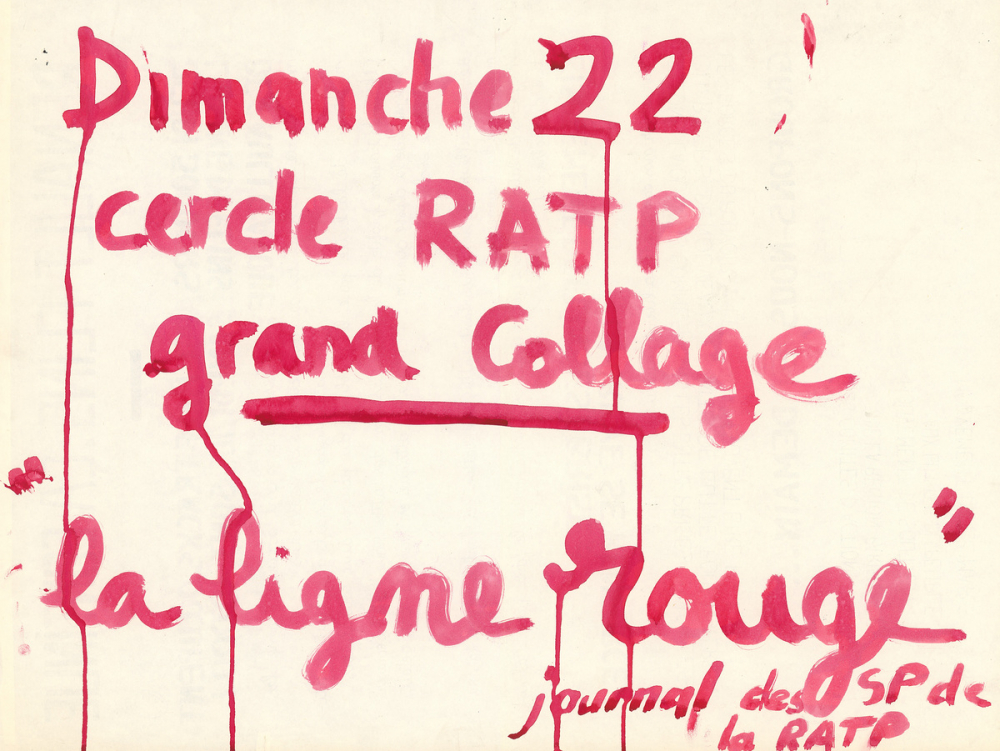 Dimanche 22
cercle RATP
grand Collage
"la ligne rouge"
journal des SP de
la RATP